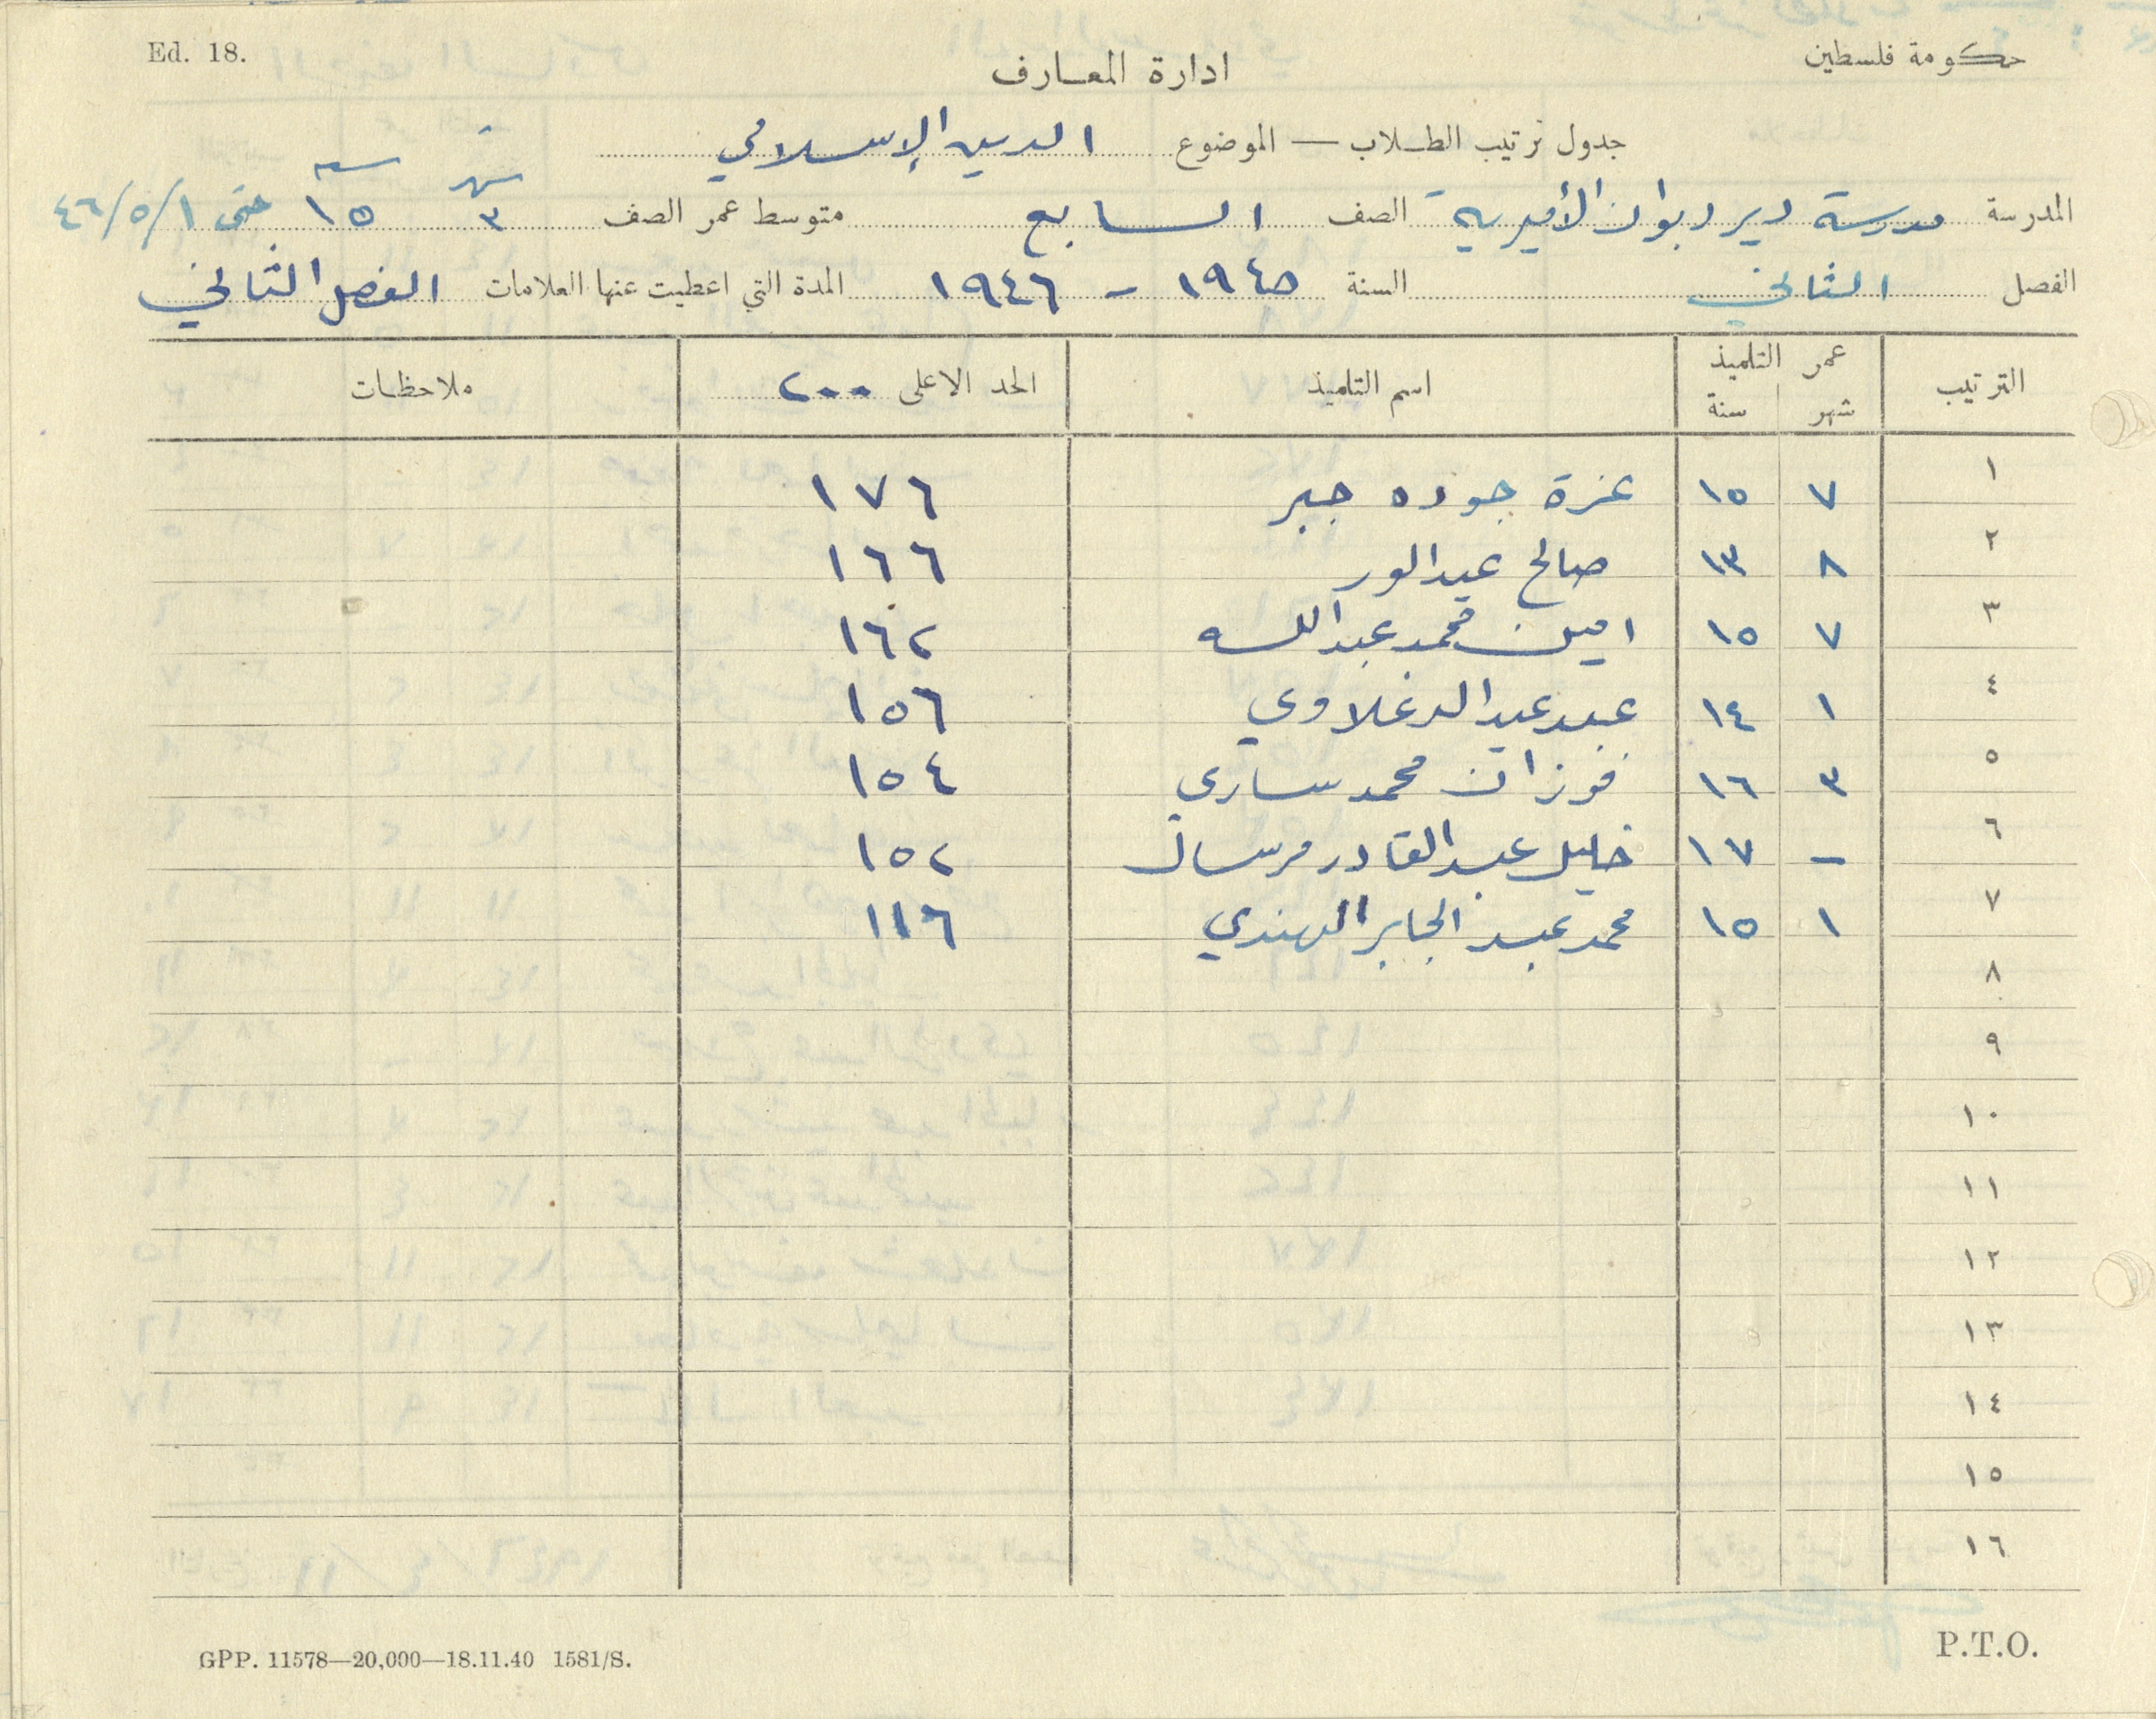 Ed. 18.
حكومة فلسطين
ادارة المعارف
جدول ترتيب الطلاب — الموضوع الدين الإسلامي
المدرسة مدرسة دير دبوان الأميرية الصف السابع متوسط عمر الصف شهر ٣ سنة ١٥ حتى ٤٦/٥/١
الفصل الثاني السنة ١٩٤٥ - ١٩٤٦ المدة التي اعطيت عنها العلامات الفصل الثاني
الترتيب عمر التلميذ شهر سنة اسم التلميذ الحد الاعلى ٢٠٠ ملاحظات
١ ٧ ١٥ عزة جوده جبر ١٧٦
٢ ٨ ١٣ صالح عبد ١٦٦
٣ ٧ ١٥ امين محمد عبدالله ١٦٢
٤ ١ ١٤ عبد ١٥٦
٥ ٣ ١٦ فوزات محمد ساري ١٥٤
٦ – ١٧ خليل عبد القادر ١٥٢
٧ ١ ١٥ محمد عبد الجابر الهندي ١١٦
٨
٩
١٠
١١
١٢
١٣
١٤
١٥
١٦
GPP. 11578—20,000—18.11.40 1581/S.
P.T.O.